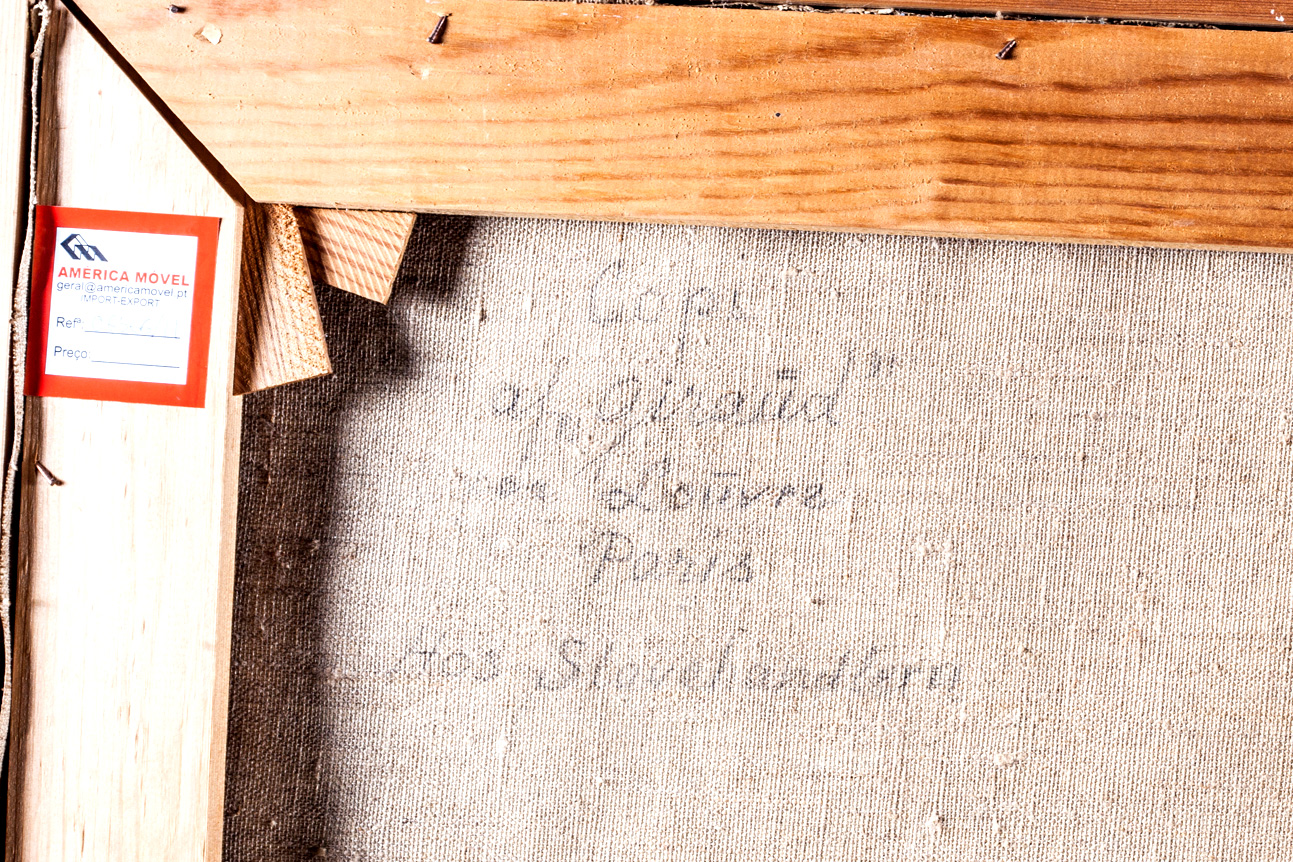 AMÉRICA MÓVEL
geral@americamovel.pt
IMPORT-EXPORT
Refª:
Preço:
Copi
af "Giraūd"
Loūvre
Paris